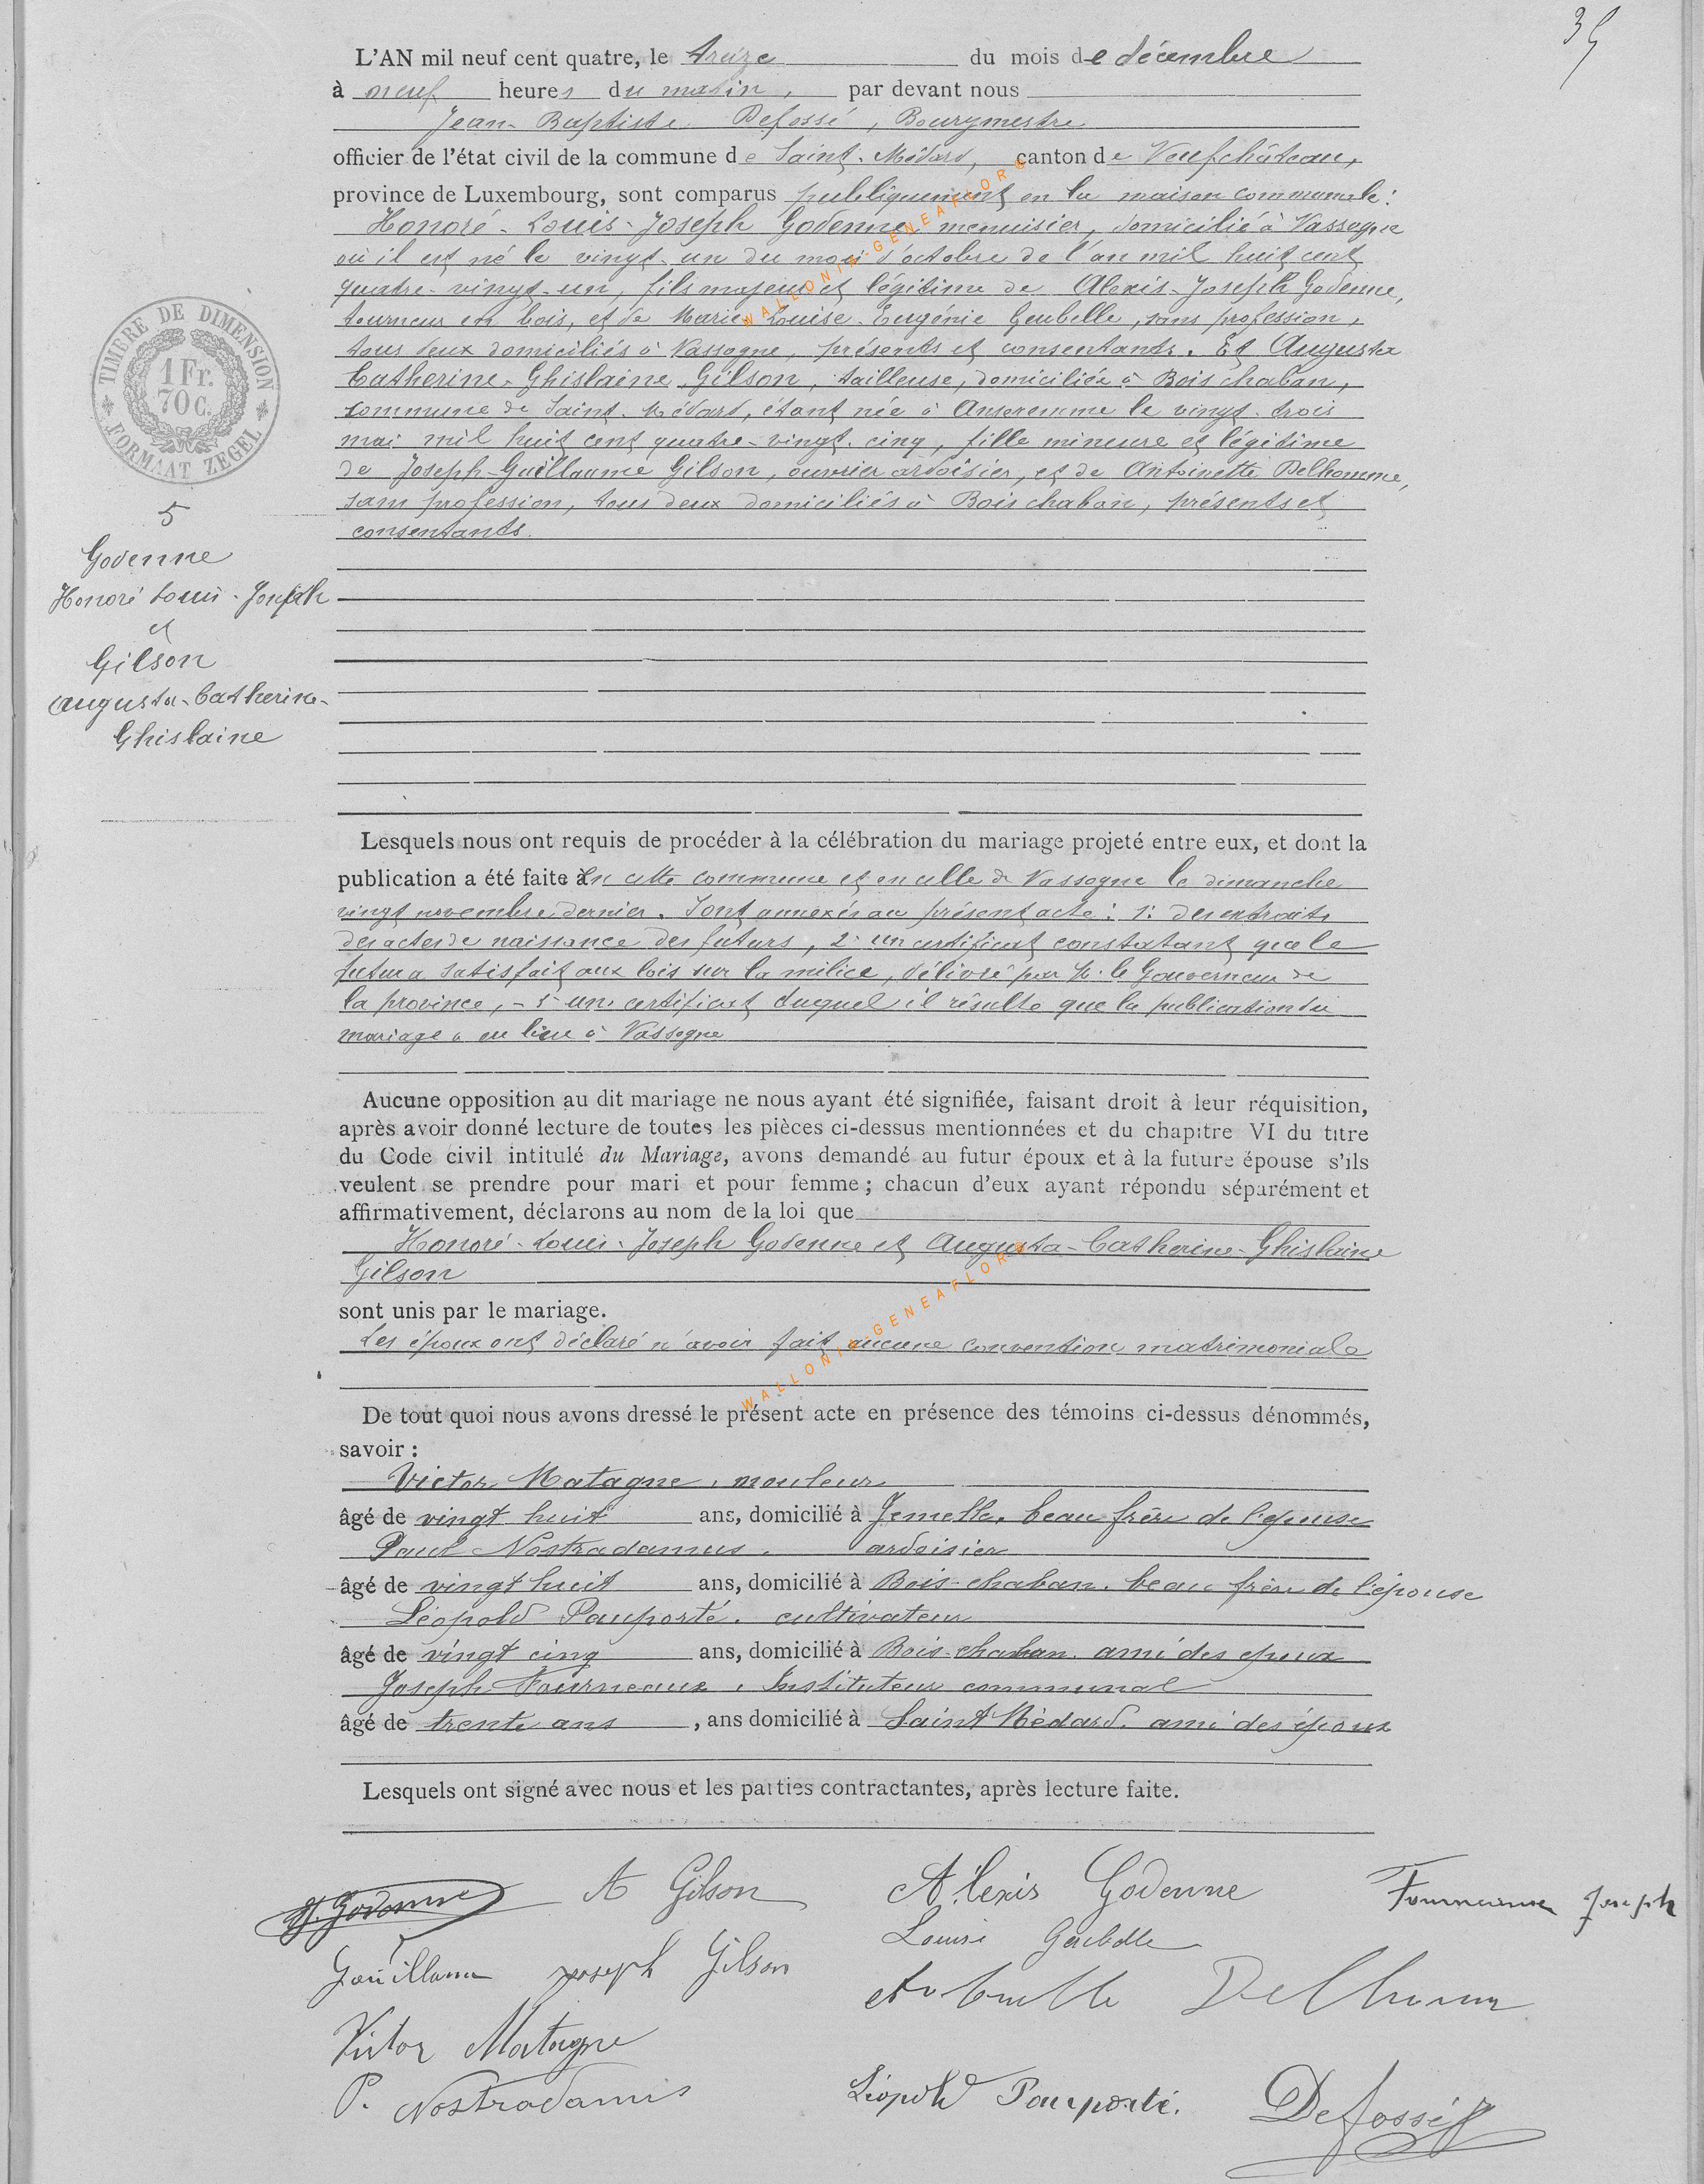 35
L'AN mil neuf cent quatre, le treize du mois de décembre
à neuf heures du matin, par devant nous
Jean-Baptiste Defossé, Bourgmestre
officier de l'état civil de la commune de Saint-Médard, canton de Neufchâteau,
province de Luxembourg, sont comparus publiquement en la maison communale:
Honoré-Louis-Joseph Godenne, menuisier, domicilié à Vassogne
où il est né le vingt-un du mois d'octobre de l'an mil huit cent
quatre-vingt-un, fils majeur et légitime de Alexis-Joseph Godenne,
tourneur en bois, et de Marie-Louise-Eugénie Geubelle, sans profession,
tous deux domiciliés à Vassogne, présents et consentants. Et Augusta
Catherine-Ghislaine Gilson, tailleuse, domiciliée à Bois chaban,
commune de Saint-Médard, étant née à Anseremme le vingt-trois
mai mil huit cent quatre-vingt-cinq, fille mineure et légitime
de Joseph-Guillaume Gilson, ouvrier ardoisier, et de Antoinette Delhomme,
sans profession, tous deux domiciliés à Bois chaban, présents et
consentants.
TIMBRE DE DIMENSION
1 Fr.
70 C.
FORMAAT ZEGEL
5
Godenne
Honoré Louis-Joseph
et
Gilson
Augusta-Catherine-
Ghislaine
Lesquels nous ont requis de procéder à la célébration du mariage projeté entre eux, et dont la
publication a été faite en cette commune et en celle de Vassogne le dimanche
vingt novembre dernier. Sont annexés au présent acte: 1: des extraits
des actes de naissance des futurs, 2: un certificat constatant que le
futur a satisfait aux lois sur la milice, délivré par M. le Gouverneur de
la province, - 3: un certificat duquel il résulte que la publication du
mariage a eu lieu à Vassogne
Aucune opposition au dit mariage ne nous ayant été signifiée, faisant droit à leur réquisition,
après avoir donné lecture de toutes les pièces ci-dessus mentionnées et du chapitre VI du titre
du Code civil intitulé du Mariage, avons demandé au futur époux et à la future épouse s'ils
veulent se prendre pour mari et pour femme ; chacun d'eux ayant répondu séparément et
affirmativement, déclarons au nom de la loi que
Honoré-Louis-Joseph Godenne et Augusta-Catherine-Ghislaine
Gilson
sont unis par le mariage.
Les époux ont déclaré n'avoir fait aucune convention matrimoniale
De tout quoi nous avons dressé le présent acte en présence des témoins ci-dessus dénommés,
savoir :
Victor Matagne, mouleur
âgé de vingt huit ans, domicilié à Jemelle, beau frère de l'epouse
Paul Nostradamus, ardoisier
âgé de vingt huit ans, domicilié à Bois-chaban, beau frère de l'épouse
Léopold Pauporté, cultivateur
âgé de vingt cinq ans, domicilié à Bois-chaban, ami des epoux
Joseph Fourneaux, Instituteur communal
âgé de trente ans, ans domicilié à Saint Médard, ami des époux
Lesquels ont signé avec nous et les parties contractantes, après lecture faite.
H. Godenne A Gilson Alexis Godenne Fourneaux Joseph
Louise Geubelle
Guillaume Joseph Gilson Antoinette Delhomme
Victor Matagne
P. Nostradamus Léopold Pauporté. Defossé
WALLONIA-GENEAFLOR®
WALLONIA-GENEAFLOR®